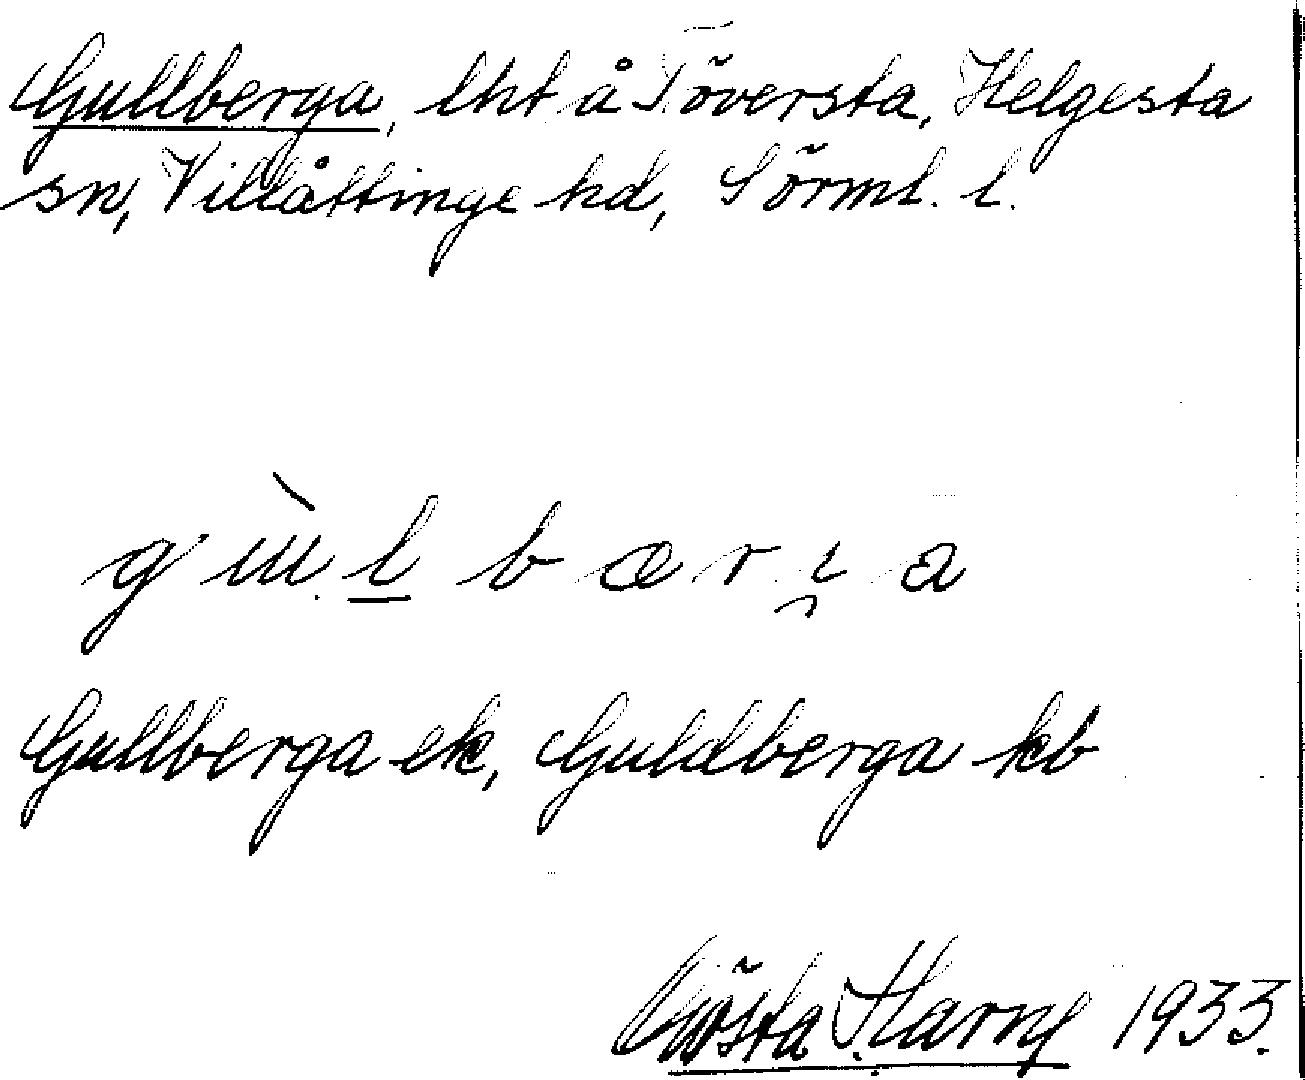 Gullberga, lht å Töversta, Helgesta
sn, Villåttinge hd, Sörml. l.
gùl bærı̯a
Gullberga ek, Guldberga kb
Gösta Harne 1933.